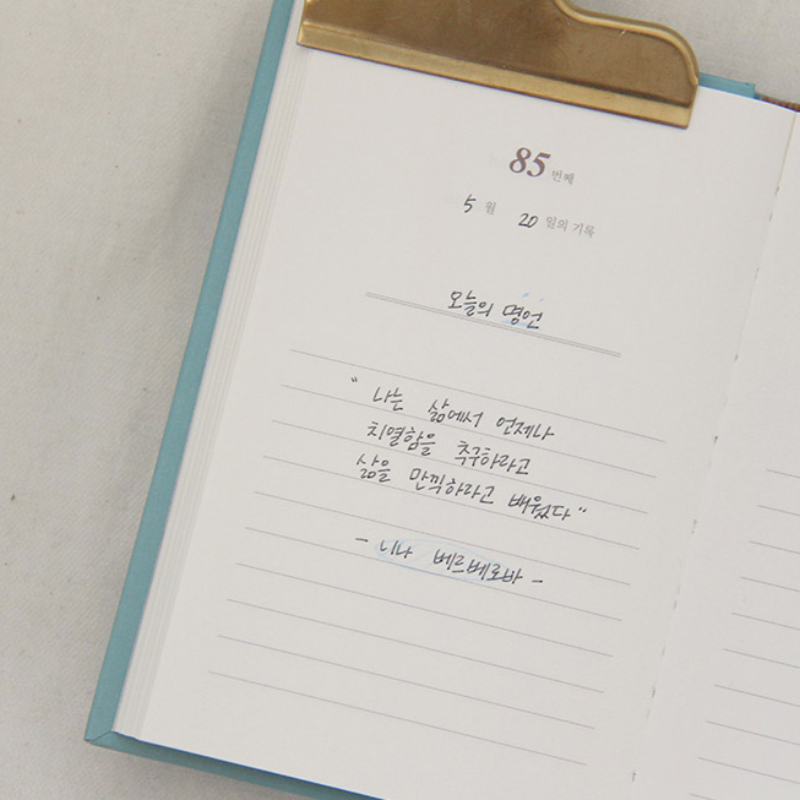 85 번째
5 월 20 일의 기록
오늘의 명언
" 나는 삶에서 언제나
치열함을 추구하라고
삶을 만끽하라고 배웠다 "
- 니나 베르베로바 -